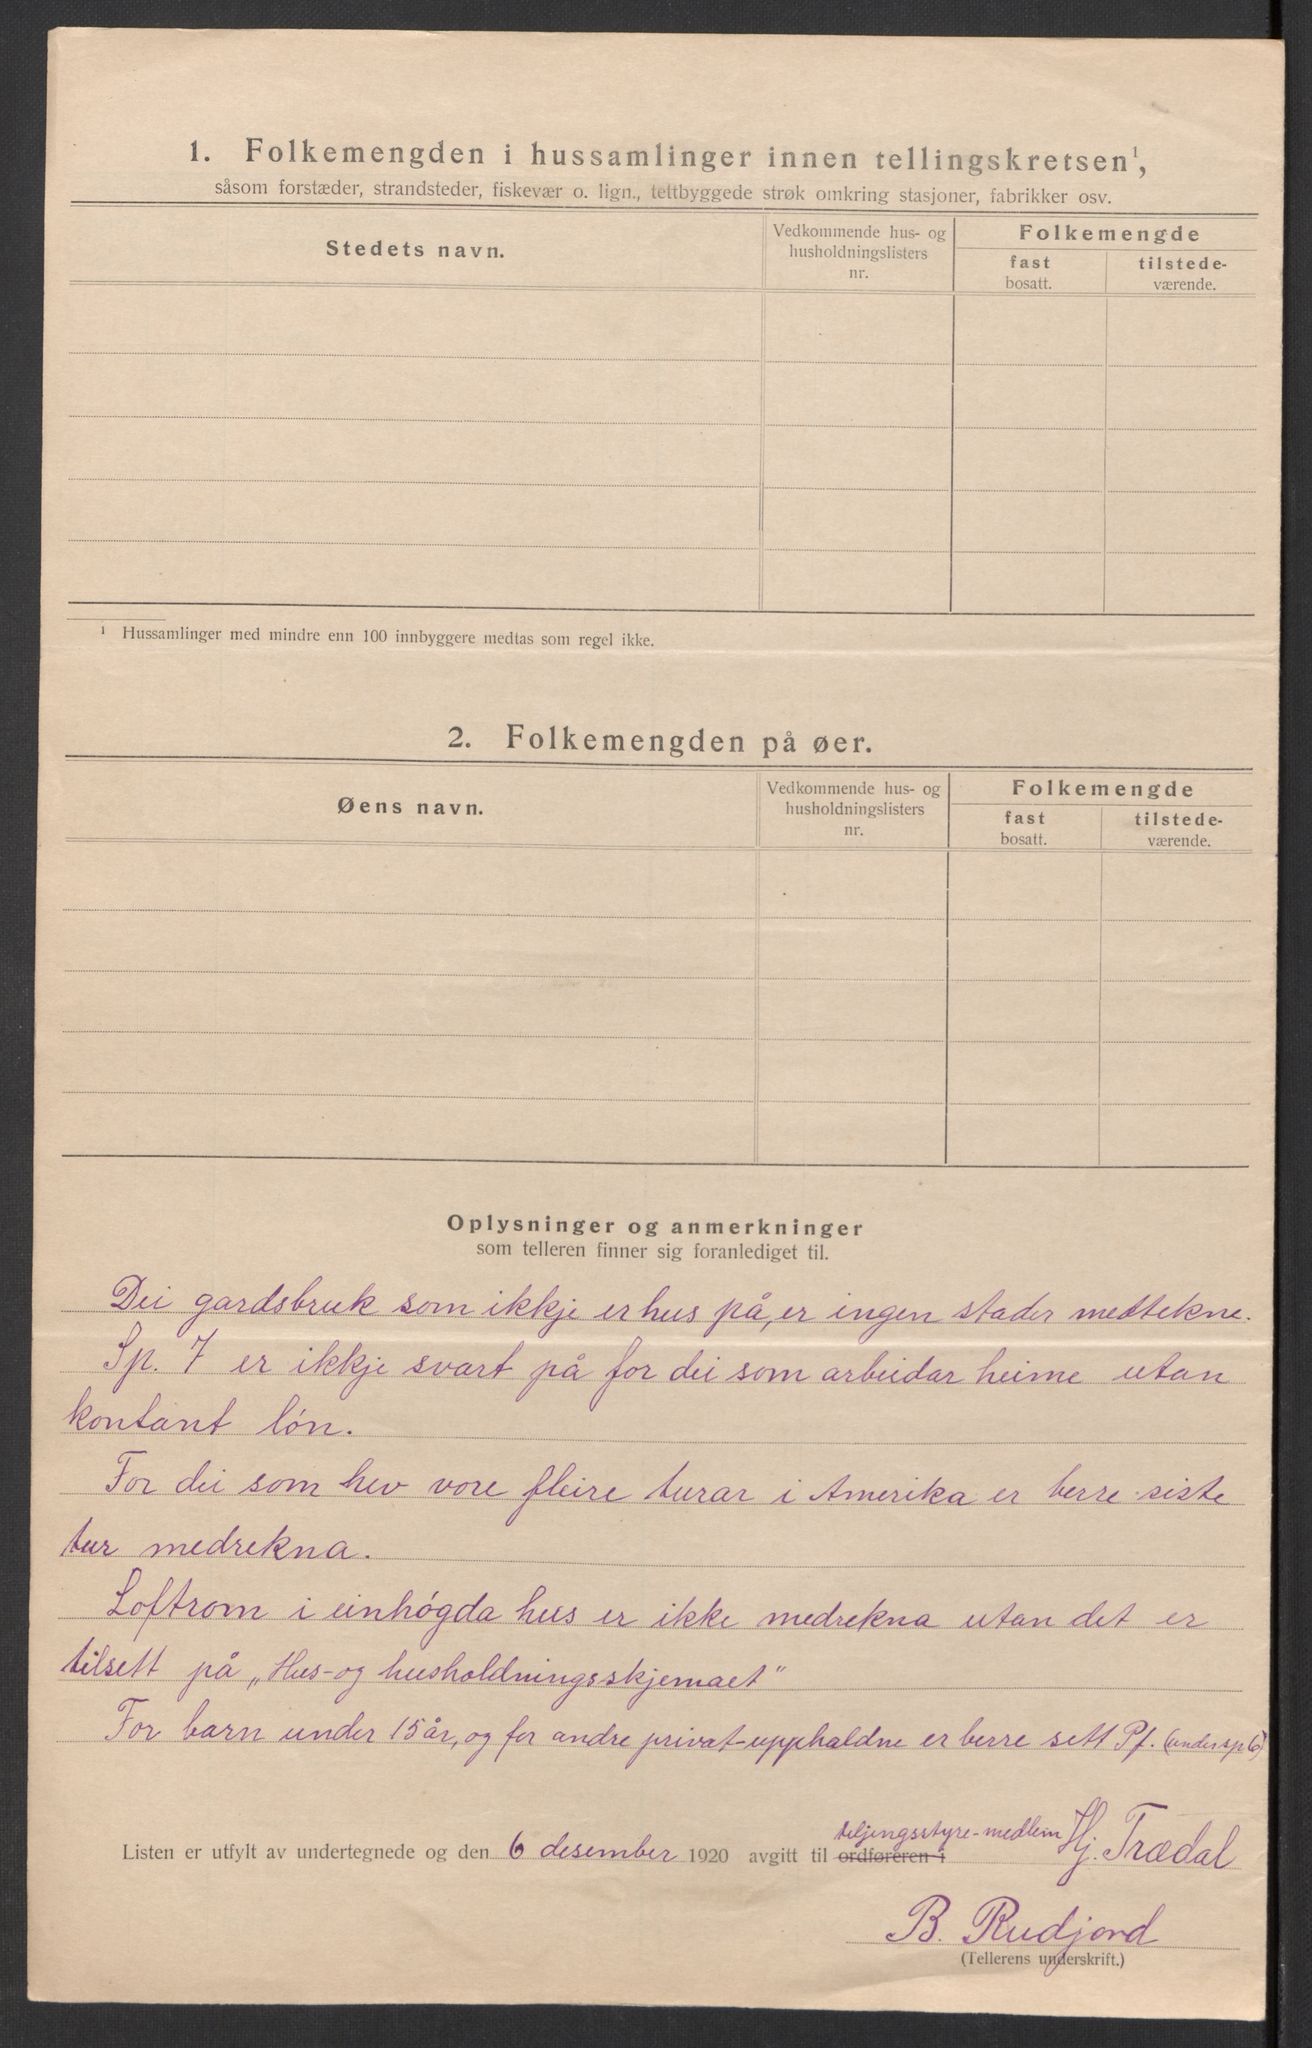 1. Folkemengden i hussamlinger innen tellingskretsen¹,
såsom forstæder, strandsteder, fiskevær o. lign., tettbyggede strøk omkring stasjoner, fabrikker osv.
Stedets navn.
Vedkommende hus- og
husholdningslisters
nr.
Folkemengde
fast
bosatt.
tilstede-
værende.
¹ Hussamlinger med mindre enn 100 innbyggere medtas som regel ikke.
2. Folkemengden på øer.
Øens navn.
Vedkommende hus- og
husholdningslisters
nr.
Folkemengde
fast
bosatt.
tilstede-
værende.
Oplysninger og anmerkninger
som telleren finner sig foranlediget til.
Dei gardsbruk som ikkje er hus på, er ingen stader medtekne.
Sp. 7 er ikkje svart på for dei som arbeidar heime utan
kontant lón.
For dei som hev vore fleire turar i Amerika er berre siste
tur medrekna.
Loftrom i einhógda hus er ikke medrekna utan det er
tilsett på „Hus- og husholdningsskjemaet"
For barn under 15 år, og for andre privat-upphaldne er berre sett Pf. (under sp 6)
teljingsstyre-medlem
Listen er utfylt av undertegnede og den 6 desember 1920 avgitt til ordføreren i Hj. Trædal
B. Rudjord
(Tellerens underskrift.)